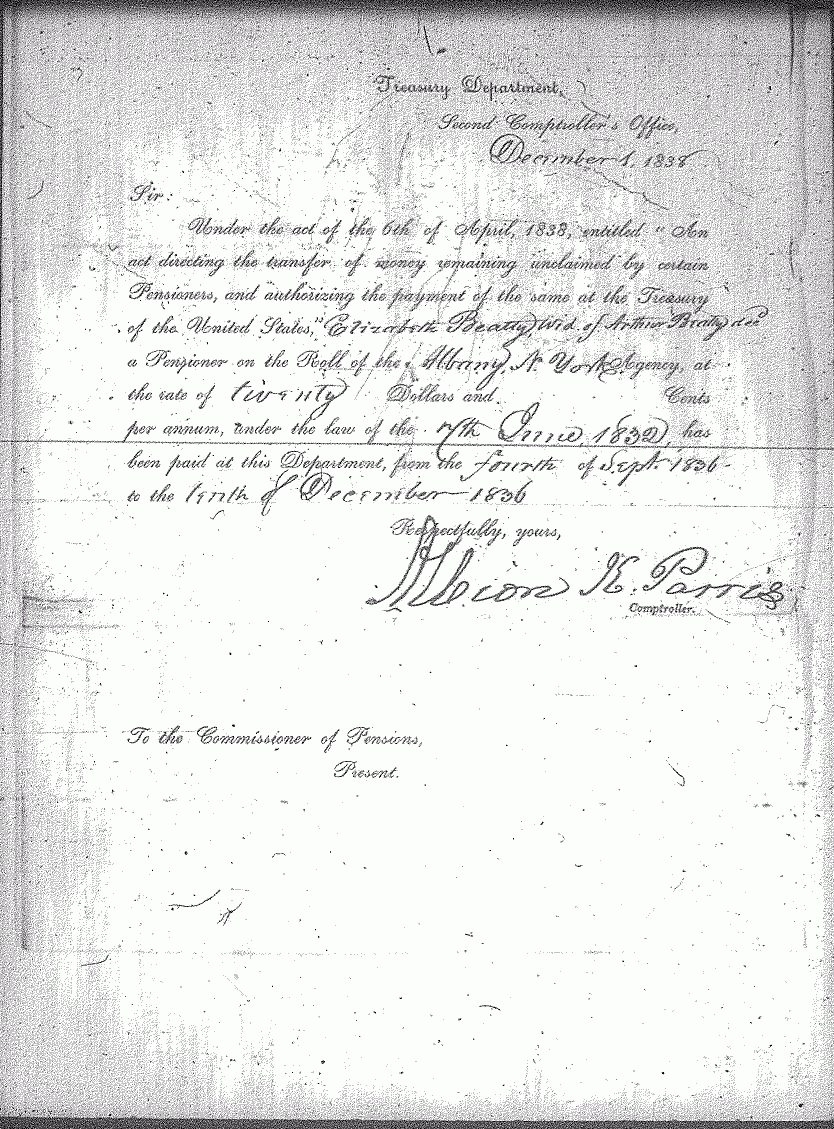 Treasury Department,
Second Comptroller's Office,
December 1, 1838
Sir:
Under the act of the 6th of April, 1838, entitled "An
act directing the transfer of money remaining unclaimed by certain
Pensioners, and authorizing the payment of the same at the Treasury
of the United States," Elizabeth Beatty, Wid. of Arthur Beatty decd
a Pensioner on the Roll of the Albany, N. York Agency, at
the rate of twenty Dollars and Cents
per annum, under the law of the 7th June, 1832, has
been paid at this Department, from the fourth of Sept. 1836
to the tenth of December 1836
Respectfully, yours,
Albion K. Parris
Comptroller.
To the Commissioner of Pensions,
Present.